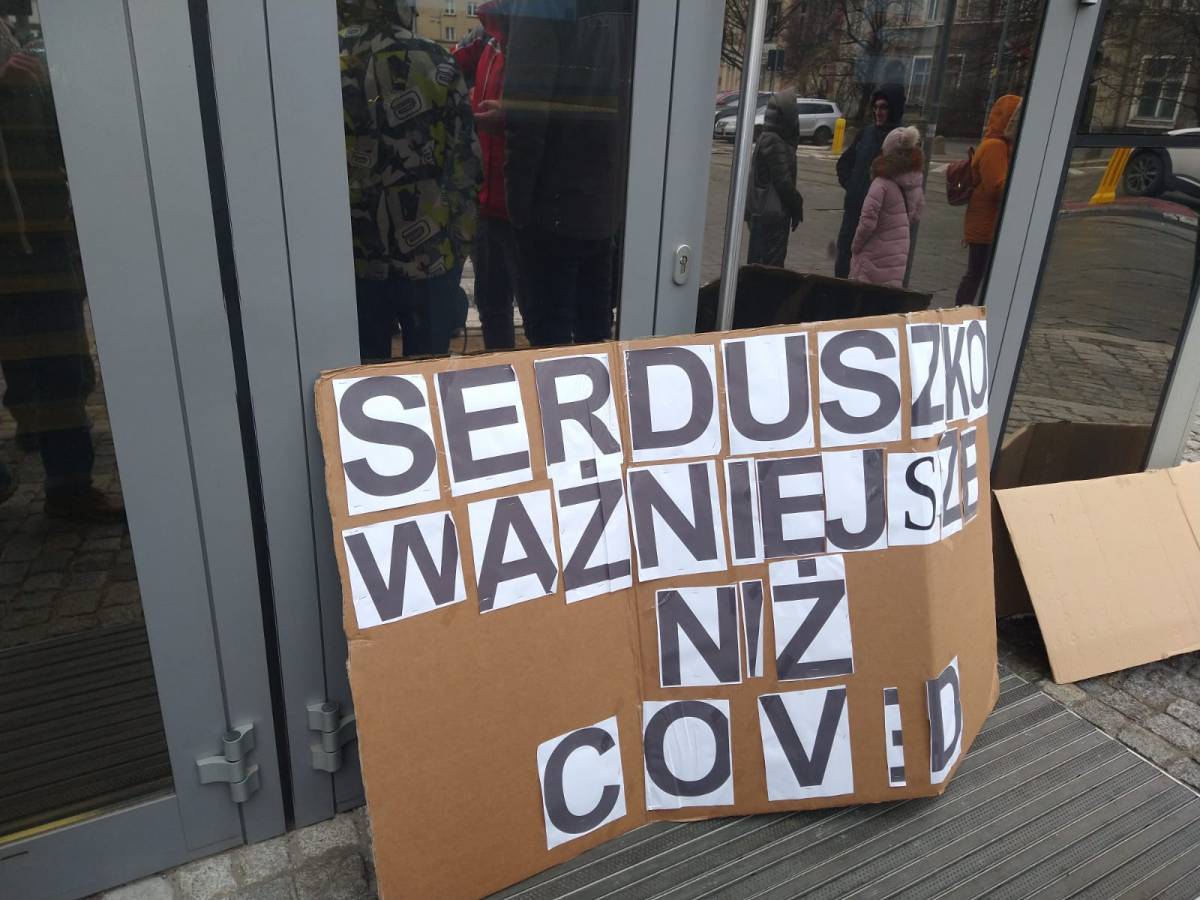 SERDUSZKO
WAŻNIEJSZE
NIŻ
COVID